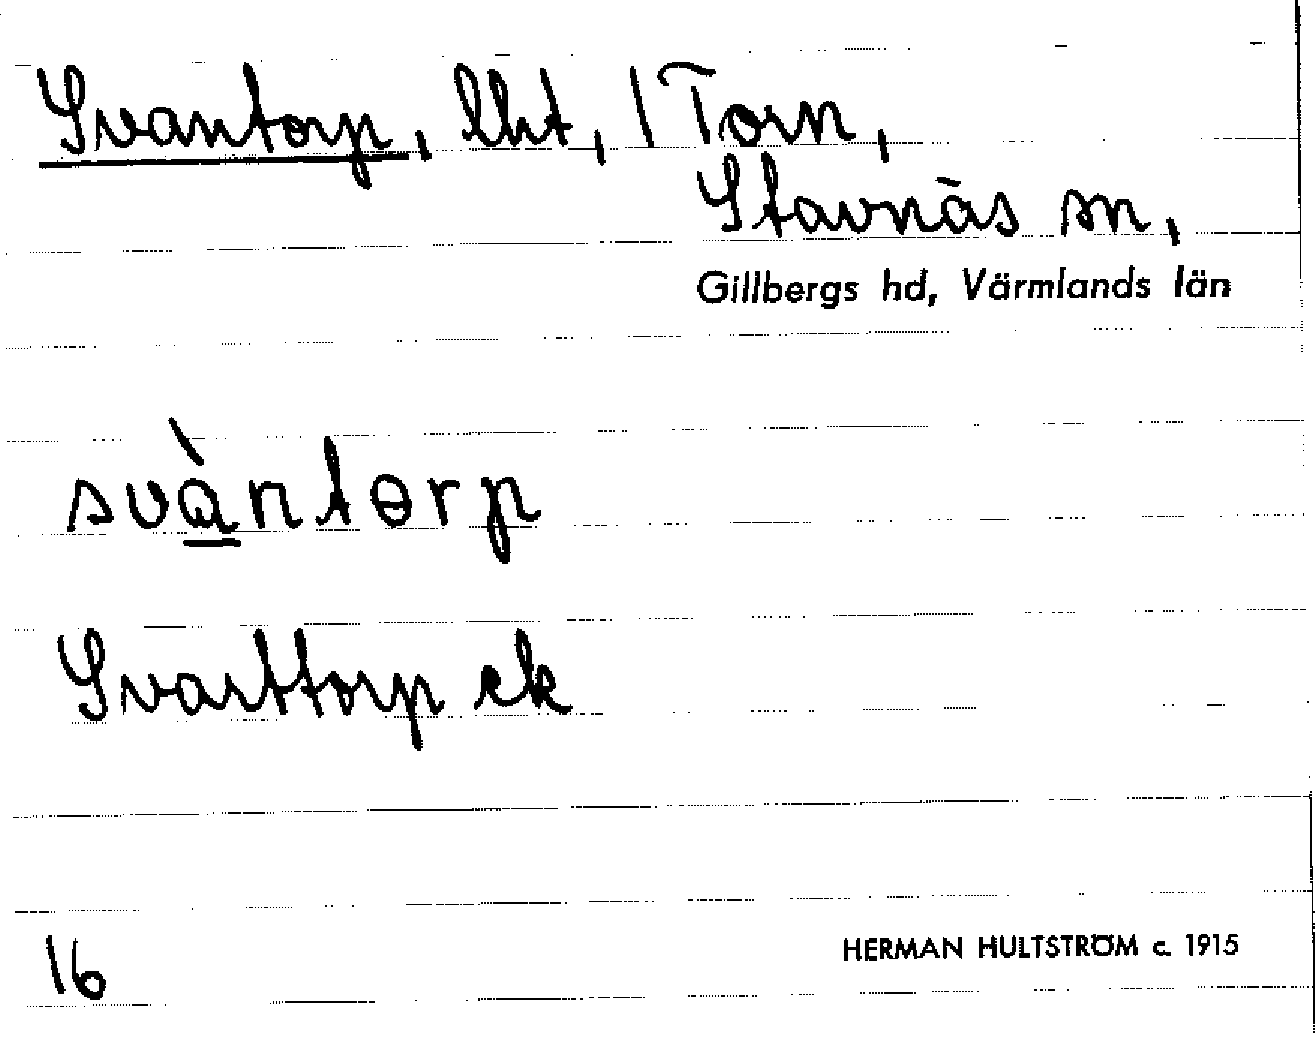 Svantorp, lht, 1 Torn,
Stavnäs sn,
Gillbergs hd, Värmlands län
svàntɵrp
Svarttorp ek
16
HERMAN HULTSTRÖM c. 1915